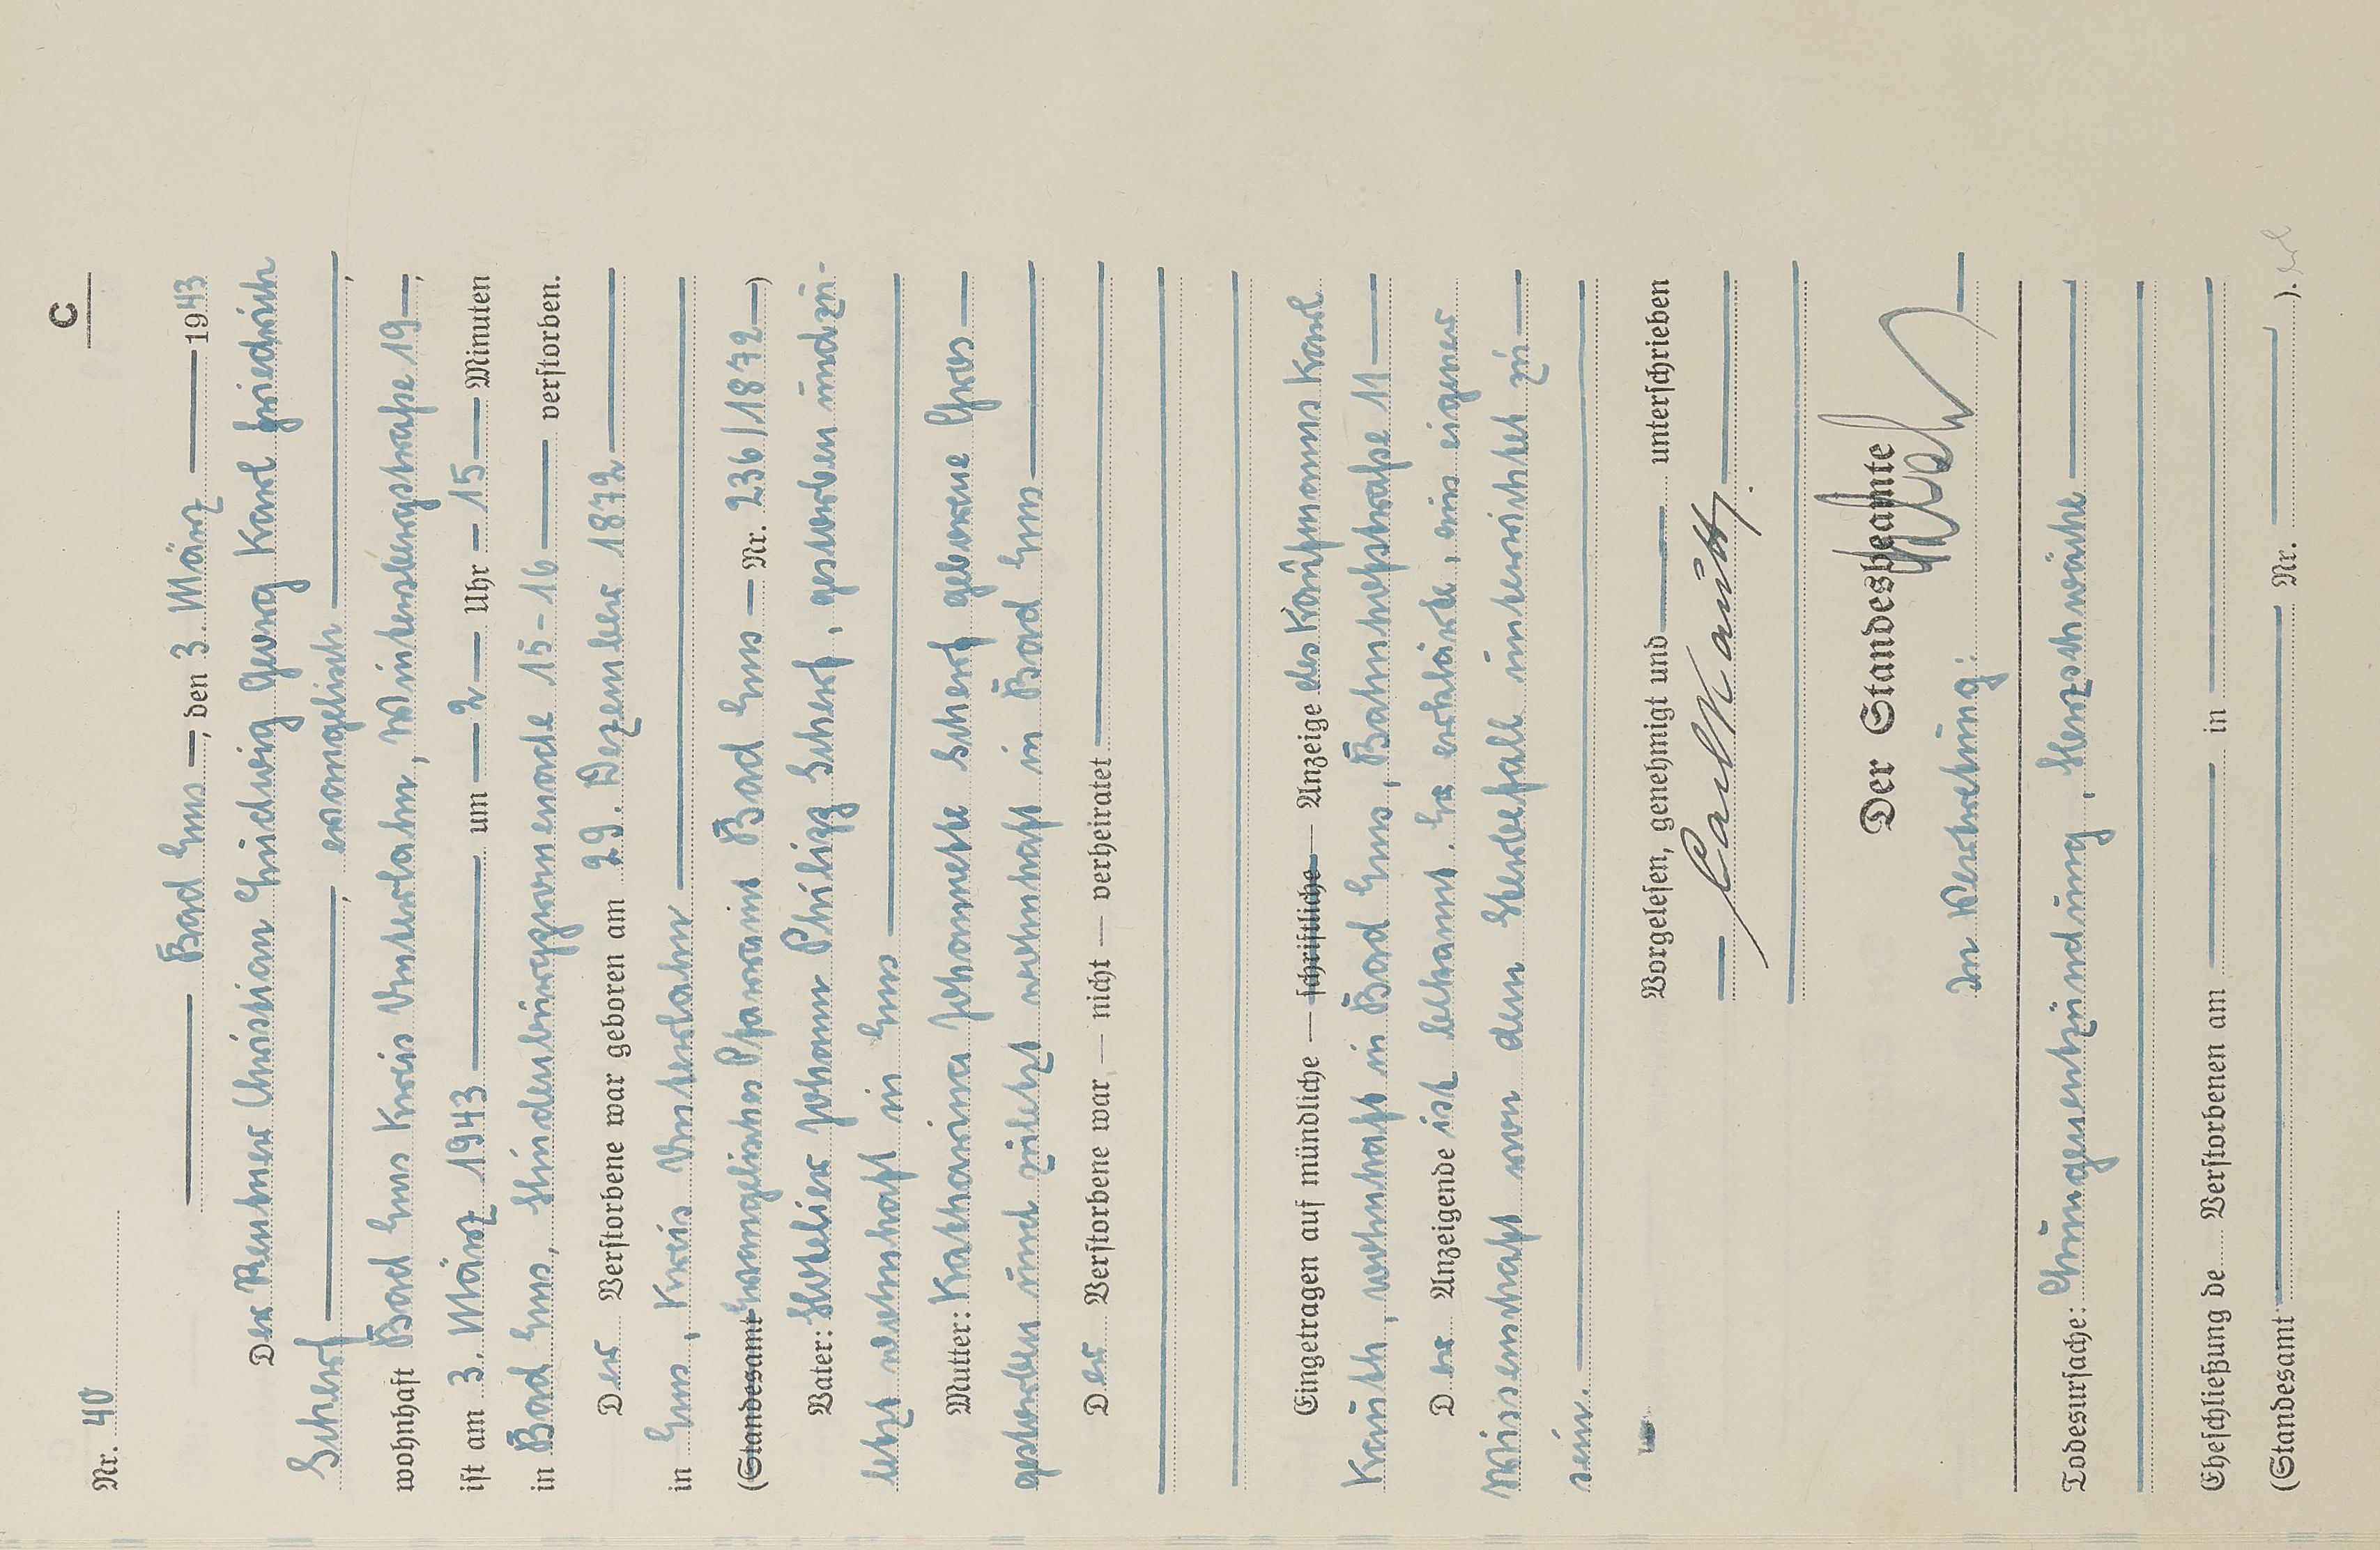 C
Nr. 40
Bad Ems, den 3. März 1943
Der Rentner Christian Ludwig Georg Karl Friedrich
Scherf, evangelisch,
wohnhaft Bad Ems Kreis Unterlahn, Wintersbergstraße 19,
ist am 3. März 1943 um 2 Uhr 15 Minuten
in Bad Ems, Hindenburgpromenade 15-16 verstorben.
Der Verstorbene war geboren am 29. Dezember 1872
in Ems, Kreis Unterlahn
(Standesamt Evangelisches Pfarramt Bad Ems Nr. 236/1872)
Vater: Hotelier Johann Philipp Scherf, gestorben und zu-
letzt wohnhaft in Ems
Mutter: Katharina Johannette Scherf geborene
gestorben und zuletzt wohnhaft in Bad Ems
Der Verstorbene war — nicht — verheiratet
Eingetragen auf mündliche — schriftliche — Anzeige des Kaufmanns Karl
Kauth, wohnhaft in Bad Ems, Bahnhofstraße 11
Der Anzeigende ist bekannt. Er erklärte, aus eigener
Wissenschaft von dem Sterbefall unterrichtet zu
sein.
Vorgelesen, genehmigt und unterschrieben
Carl Kauth.
Der Standesbeamte
In Vertretung:
Todesursache: Lungenentzündung, Herzschwäche
Eheschließung de Verstorbenen am in
(Standesamt Nr. ).